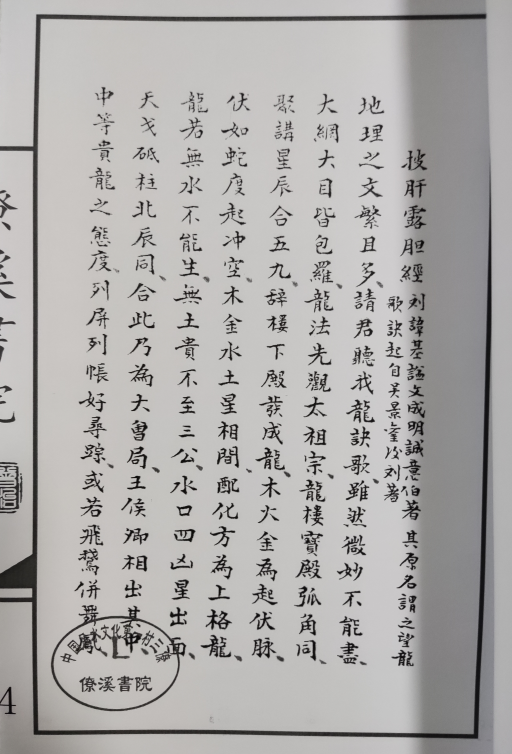 披肝露胆經 劉諱基謚文成明誠意伯著 其原名謂之望龍
歌訣起自吴景鸞後刘著
地理之文繁且多、請君聽我龍訣歌、雖然微妙不能盡、
大網大目皆包羅、龍法先觀太祖宗、龍樓寶殿弧角同、
聚講星辰合五九、辞樓下殿發成龍、木火金為起伏脉、
伏如蛇度起冲空、木金水土星相間、配化方為上格龍、
龍若無水不能生、無土貴不至三公、水口四凶星出面、
天戈砥柱北辰同、合此乃為大曾局、王侯卿相出其中、
中等貴龍之態度、列屏列帳好尋踪、或若飛鵞併舞鳳
中国風水文化第一村三僚
僚溪書院
僚溪書院
4